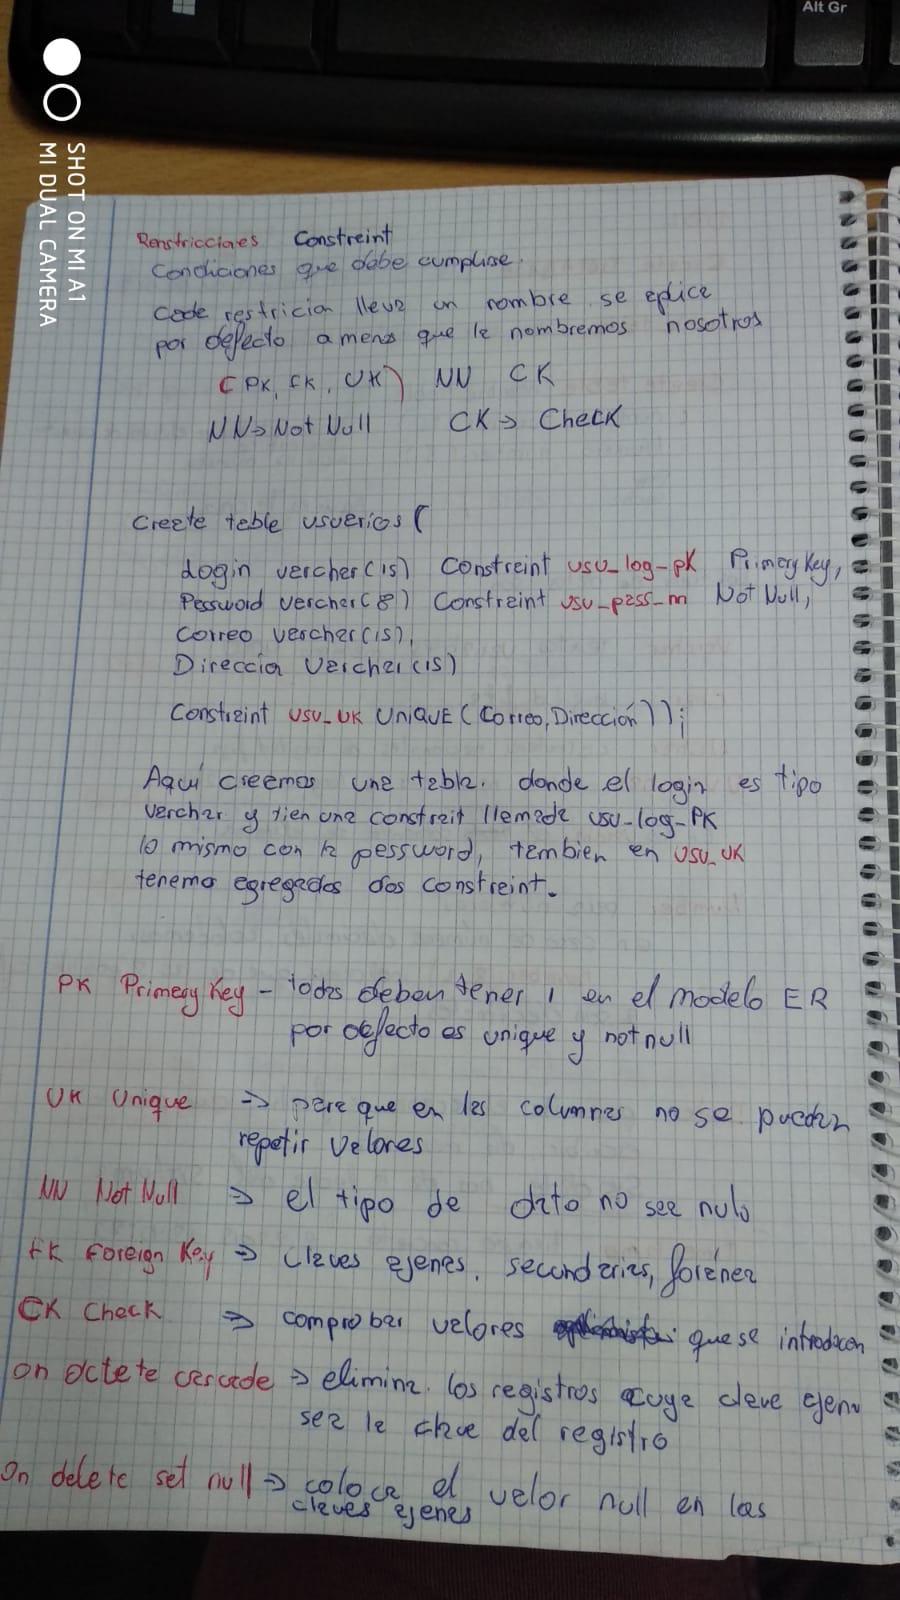 Alt Gr
SHOT ON MI A1
MI DUAL CAMERA
Renstricciones Constraint
Condiciones que debe cumplirse.
Cada restricion lleva un nombre se aplica
por defecto a menos que le nombremos nosotros
(PK, FK, UK) NN CK
NN→Not Null CK→ Check
Create table usuarios (
Login varchar(15) Constraint usu_log-pk Primary Key,
Password varchar(8) Constraint usu-pass-nn Not Null,
Correo varchar(15),
Direccion Varchar(15)
Constraint usu_UK UNIQUE (Correo,Dirección));
Aquí creamos una tabla. donde el login es tipo
varchar y tien una constrait llamada usu-log-PK
lo mismo con la password, tambien en usu_UK
tenemo agregados dos constraint.
PK Primary Key - todas deben tener 1 en el modelo ER
por defecto es unique y not null
UK Unique => para que en las columnas no se puedan
repetir valores
NN Not Null => el tipo de dato no sea nulo
FK Foreign Key => claves ajenas, secundarias, foránea
CK Check => comprobar valores que se introducen
on octete cascade => elimina. los registros cuya clave ajena
sea la clave del registro
On delete set null => coloca el valor null en las
claves ajenas